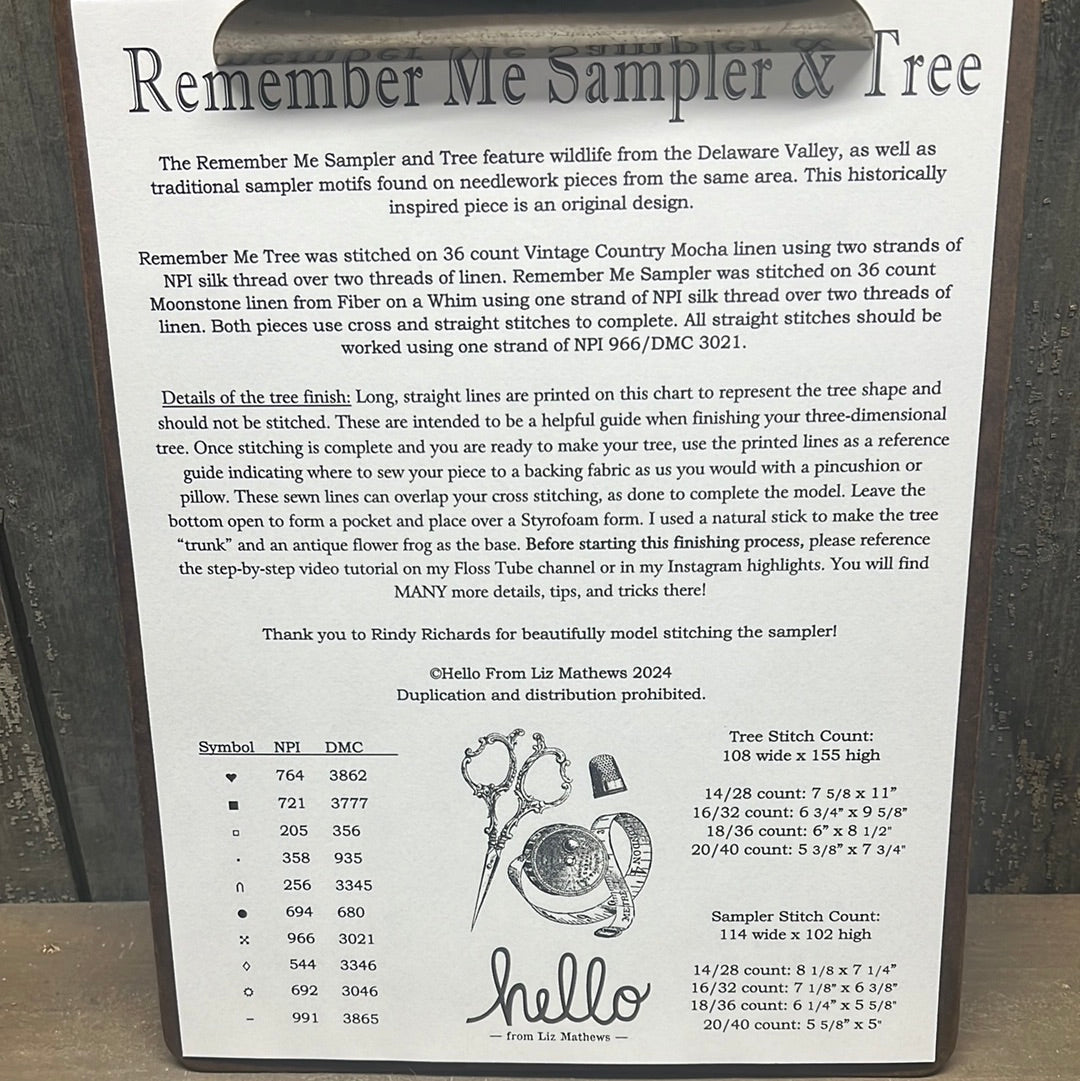 Remember Me Sampler & Tree
The Remember Me Sampler and Tree feature wildlife from the Delaware Valley, as well as
traditional sampler motifs found on needlework pieces from the same area. This historically
inspired piece is an original design.
Remember Me Tree was stitched on 36 count Vintage Country Mocha linen using two strands of
NPI silk thread over two threads of linen. Remember Me Sampler was stitched on 36 count
Moonstone linen from Fiber on a Whim using one strand of NPI silk thread over two threads of
linen. Both pieces use cross and straight stitches to complete. All straight stitches should be
worked using one strand of NPI 966/DMC 3021.
Details of the tree finish: Long, straight lines are printed on this chart to represent the tree shape and
should not be stitched. These are intended to be a helpful guide when finishing your three-dimensional
tree. Once stitching is complete and you are ready to make your tree, use the printed lines as a reference
guide indicating where to sew your piece to a backing fabric as us you would with a pincushion or
pillow. These sewn lines can overlap your cross stitching, as done to complete the model. Leave the
bottom open to form a pocket and place over a Styrofoam form. I used a natural stick to make the tree
“trunk” and an antique flower frog as the base. Before starting this finishing process, please reference
the step-by-step video tutorial on my Floss Tube channel or in my Instagram highlights. You will find
MANY more details, tips, and tricks there!
Thank you to Rindy Richards for beautifully model stitching the sampler!
©Hello From Liz Mathews 2024
Duplication and distribution prohibited.
Symbol NPI DMC
♥ 764 3862
■ 721 3777
▫ 205 356
· 358 935
∩ 256 3345
● 694 680
⁙ 966 3021
◊ 544 3346
☼ 692 3046
– 991 3865
hello
— from Liz Mathews —
Tree Stitch Count:
108 wide x 155 high
14/28 count: 7 5/8 x 11”
16/32 count: 6 3/4” x 9 5/8”
18/36 count: 6” x 8 1/2"
20/40 count: 5 3/8” x 7 3/4"
Sampler Stitch Count:
114 wide x 102 high
14/28 count: 8 1/8 x 7 1/4”
16/32 count: 7 1/8" x 6 3/8”
18/36 count: 6 1/4” x 5 5/8"
20/40 count: 5 5/8” x 5"